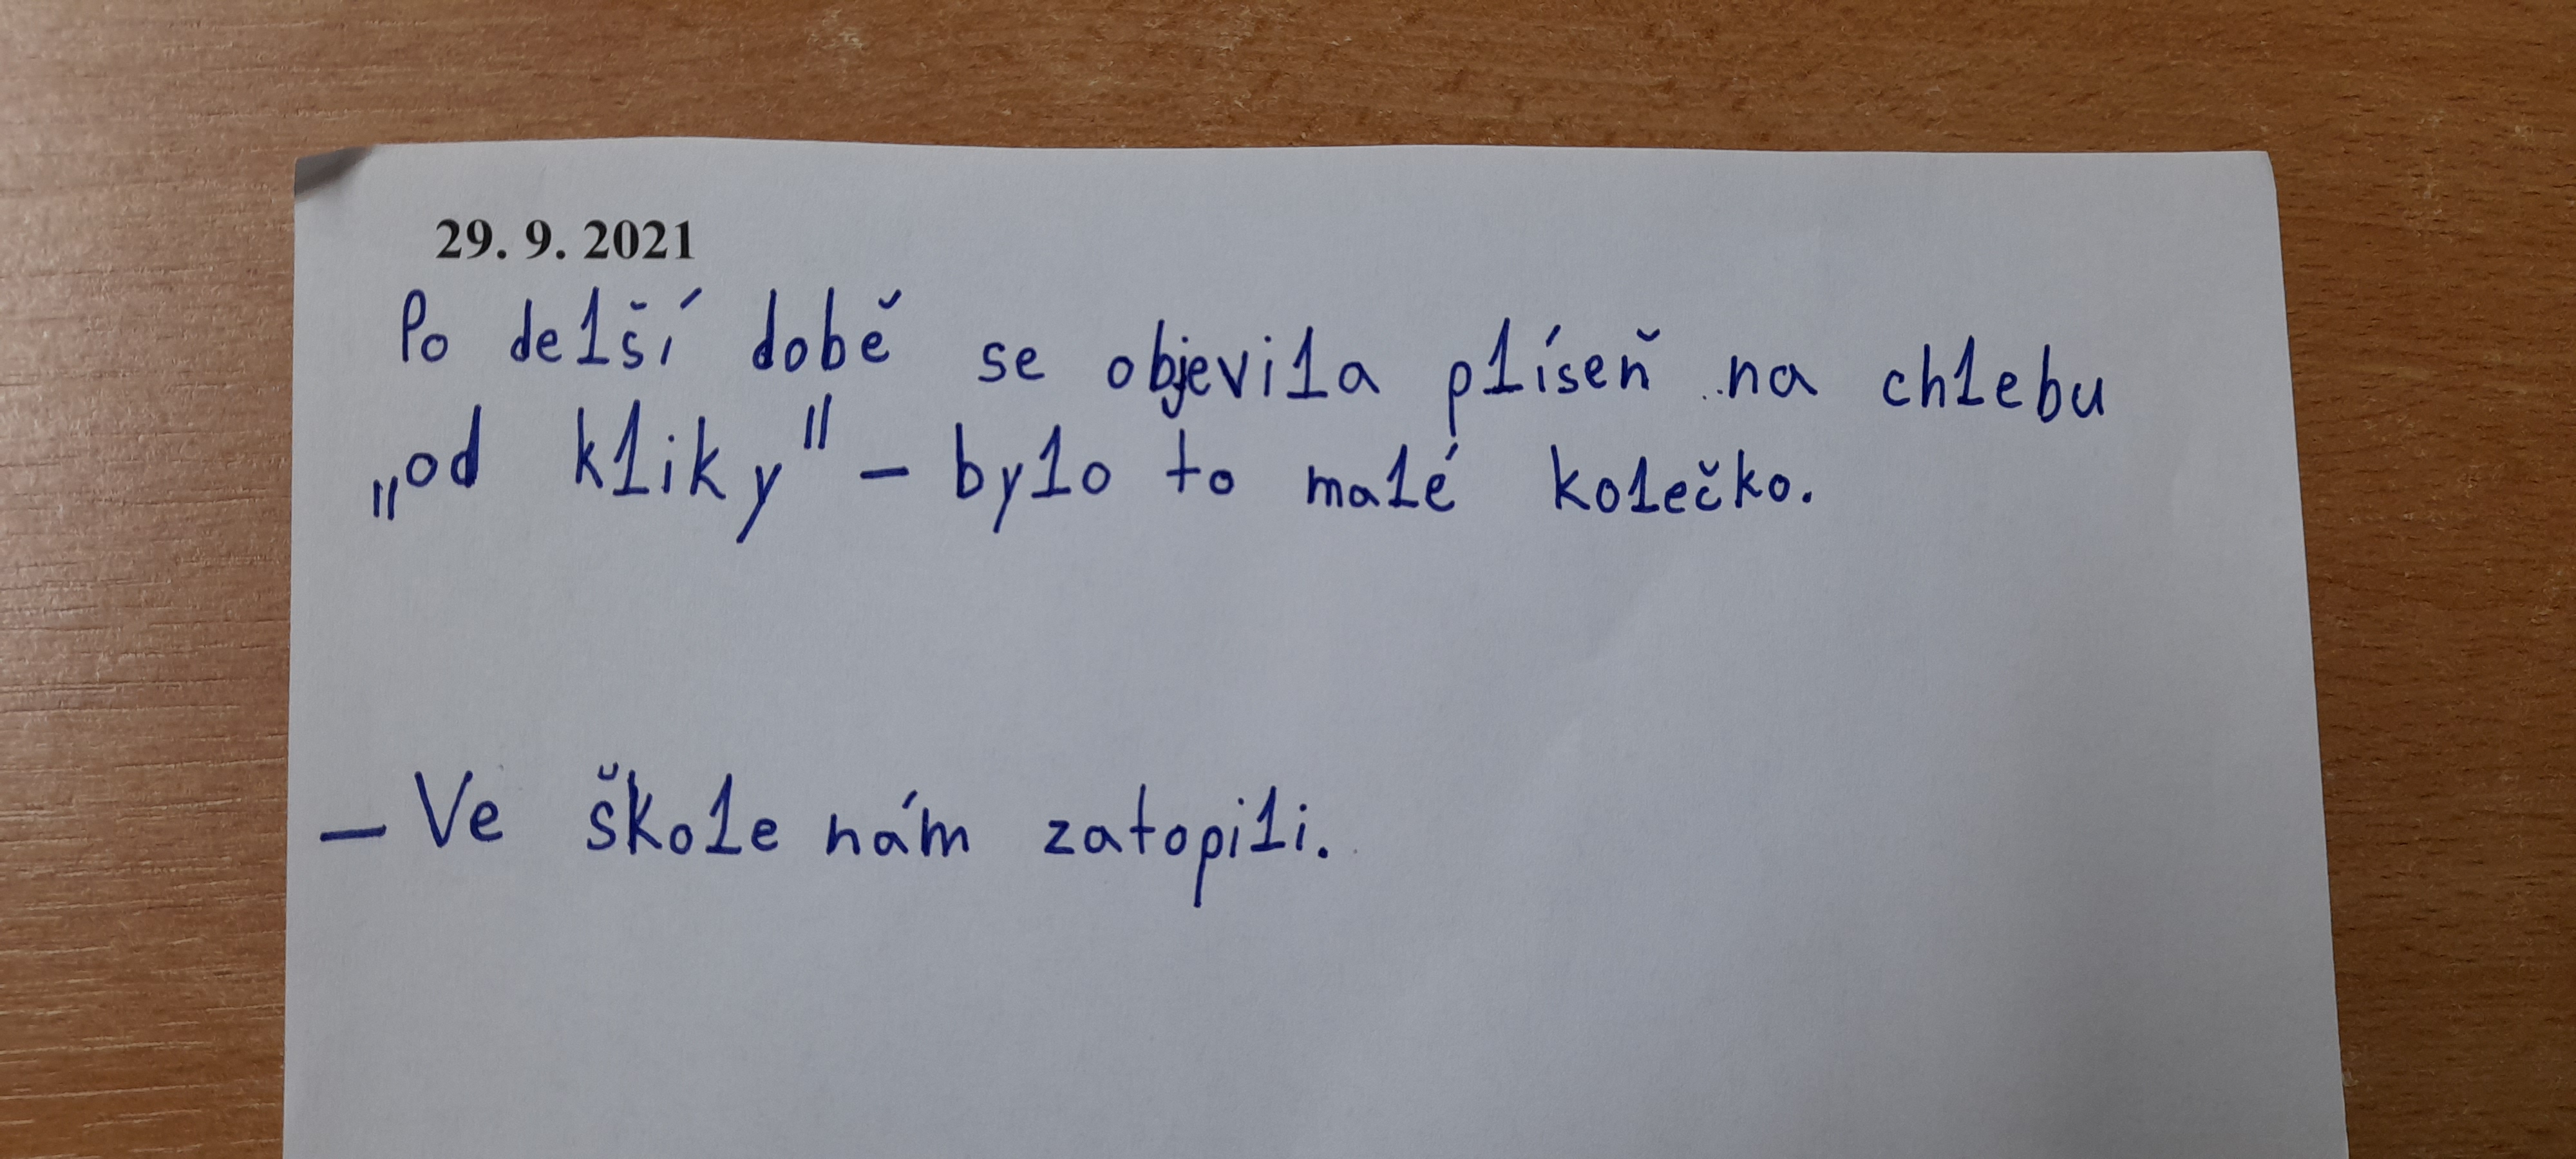 29. 9. 2021
Po delší době se objevila plíseň na chlebu
„od kliky" – bylo to malé kolečko.
– Ve škole nám zatopili.